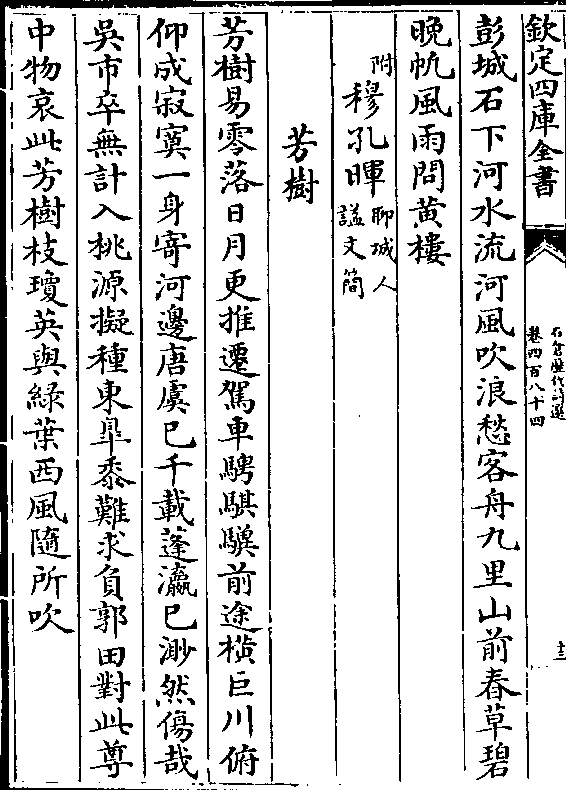 欽定四庫全書
石倉歷代詩選
卷四百八十四
十三
彭城石下河水流河風吹浪愁客舟九里山前春草碧
晚帆風雨問黃樓
附穆孔暉聊城人
謚文簡
芳樹
芳樹易零落日月更推遷駕車騁騏驥前途橫巨川俯
仰成寂寞一身寄河邊唐虞已千載蓬瀛已渺然傷哉
吳市卒無計入桃源擬種東臯黍難求負郭田對此尊
中物哀此芳樹枝瓊英與綠葉西風隨所吹